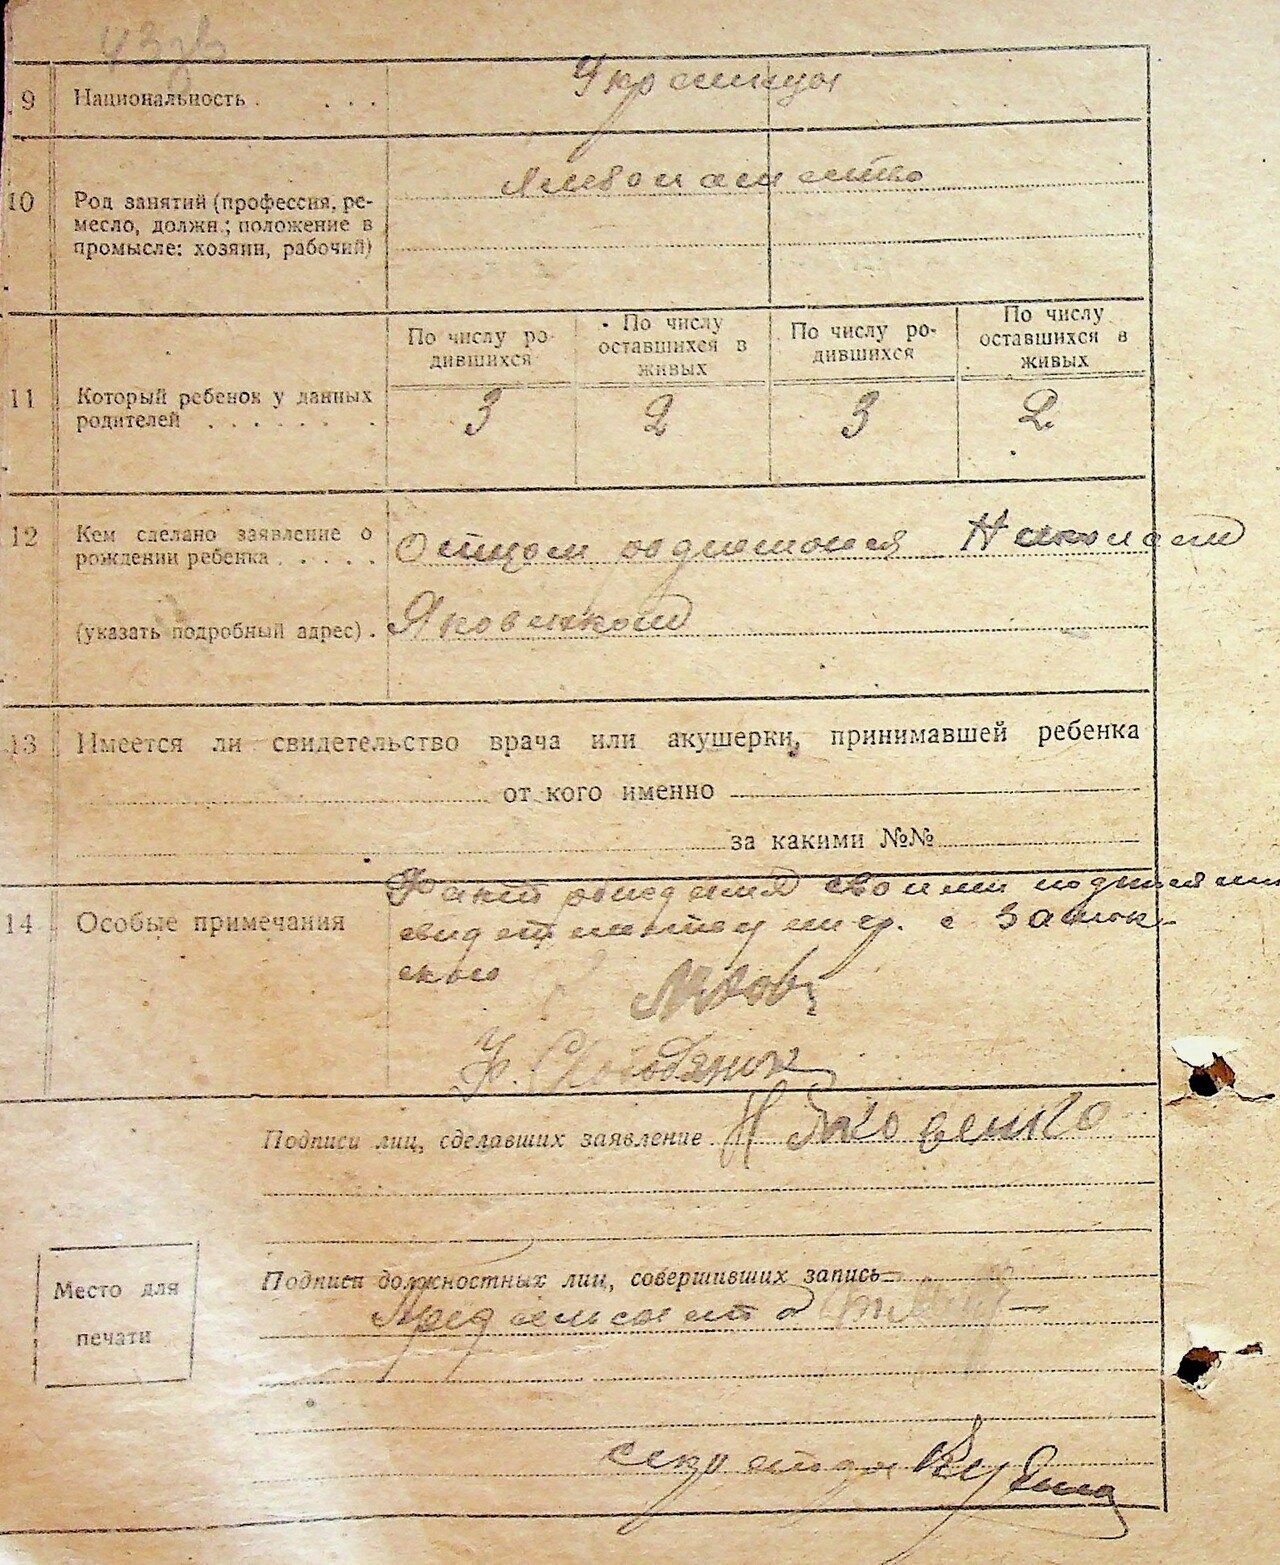 9 Национальность . . . .
Украинцы
10 Род занятий (профессия, ре-
месло, должн.; положение в
промысле: хозяин, рабочий)
11 Который ребенок у данных
родителей . . . . . . .
По числу ро-
дившихся
По числу
оставшихся в
живых
По числу ро-
дившихся
По числу
оставшихся в
живых
3 2 3 2
12 Кем сделано заявление о
рождении ребенка . . . . .
Отцом Николаем
(указать подробный адрес) .
Яковенком
13 Имеется ли свидетельство врача или акушерки, принимавшей ребенка
от кого именно
за какими №№
14 Особые примечания
Факт рождения своими подписями
свидетельствуем гр. с
Слободянюк
Подписи лиц, сделавших заявление Н Яковенко
Подписи должностных лиц, совершивших запись
Место для
печати
секретарь